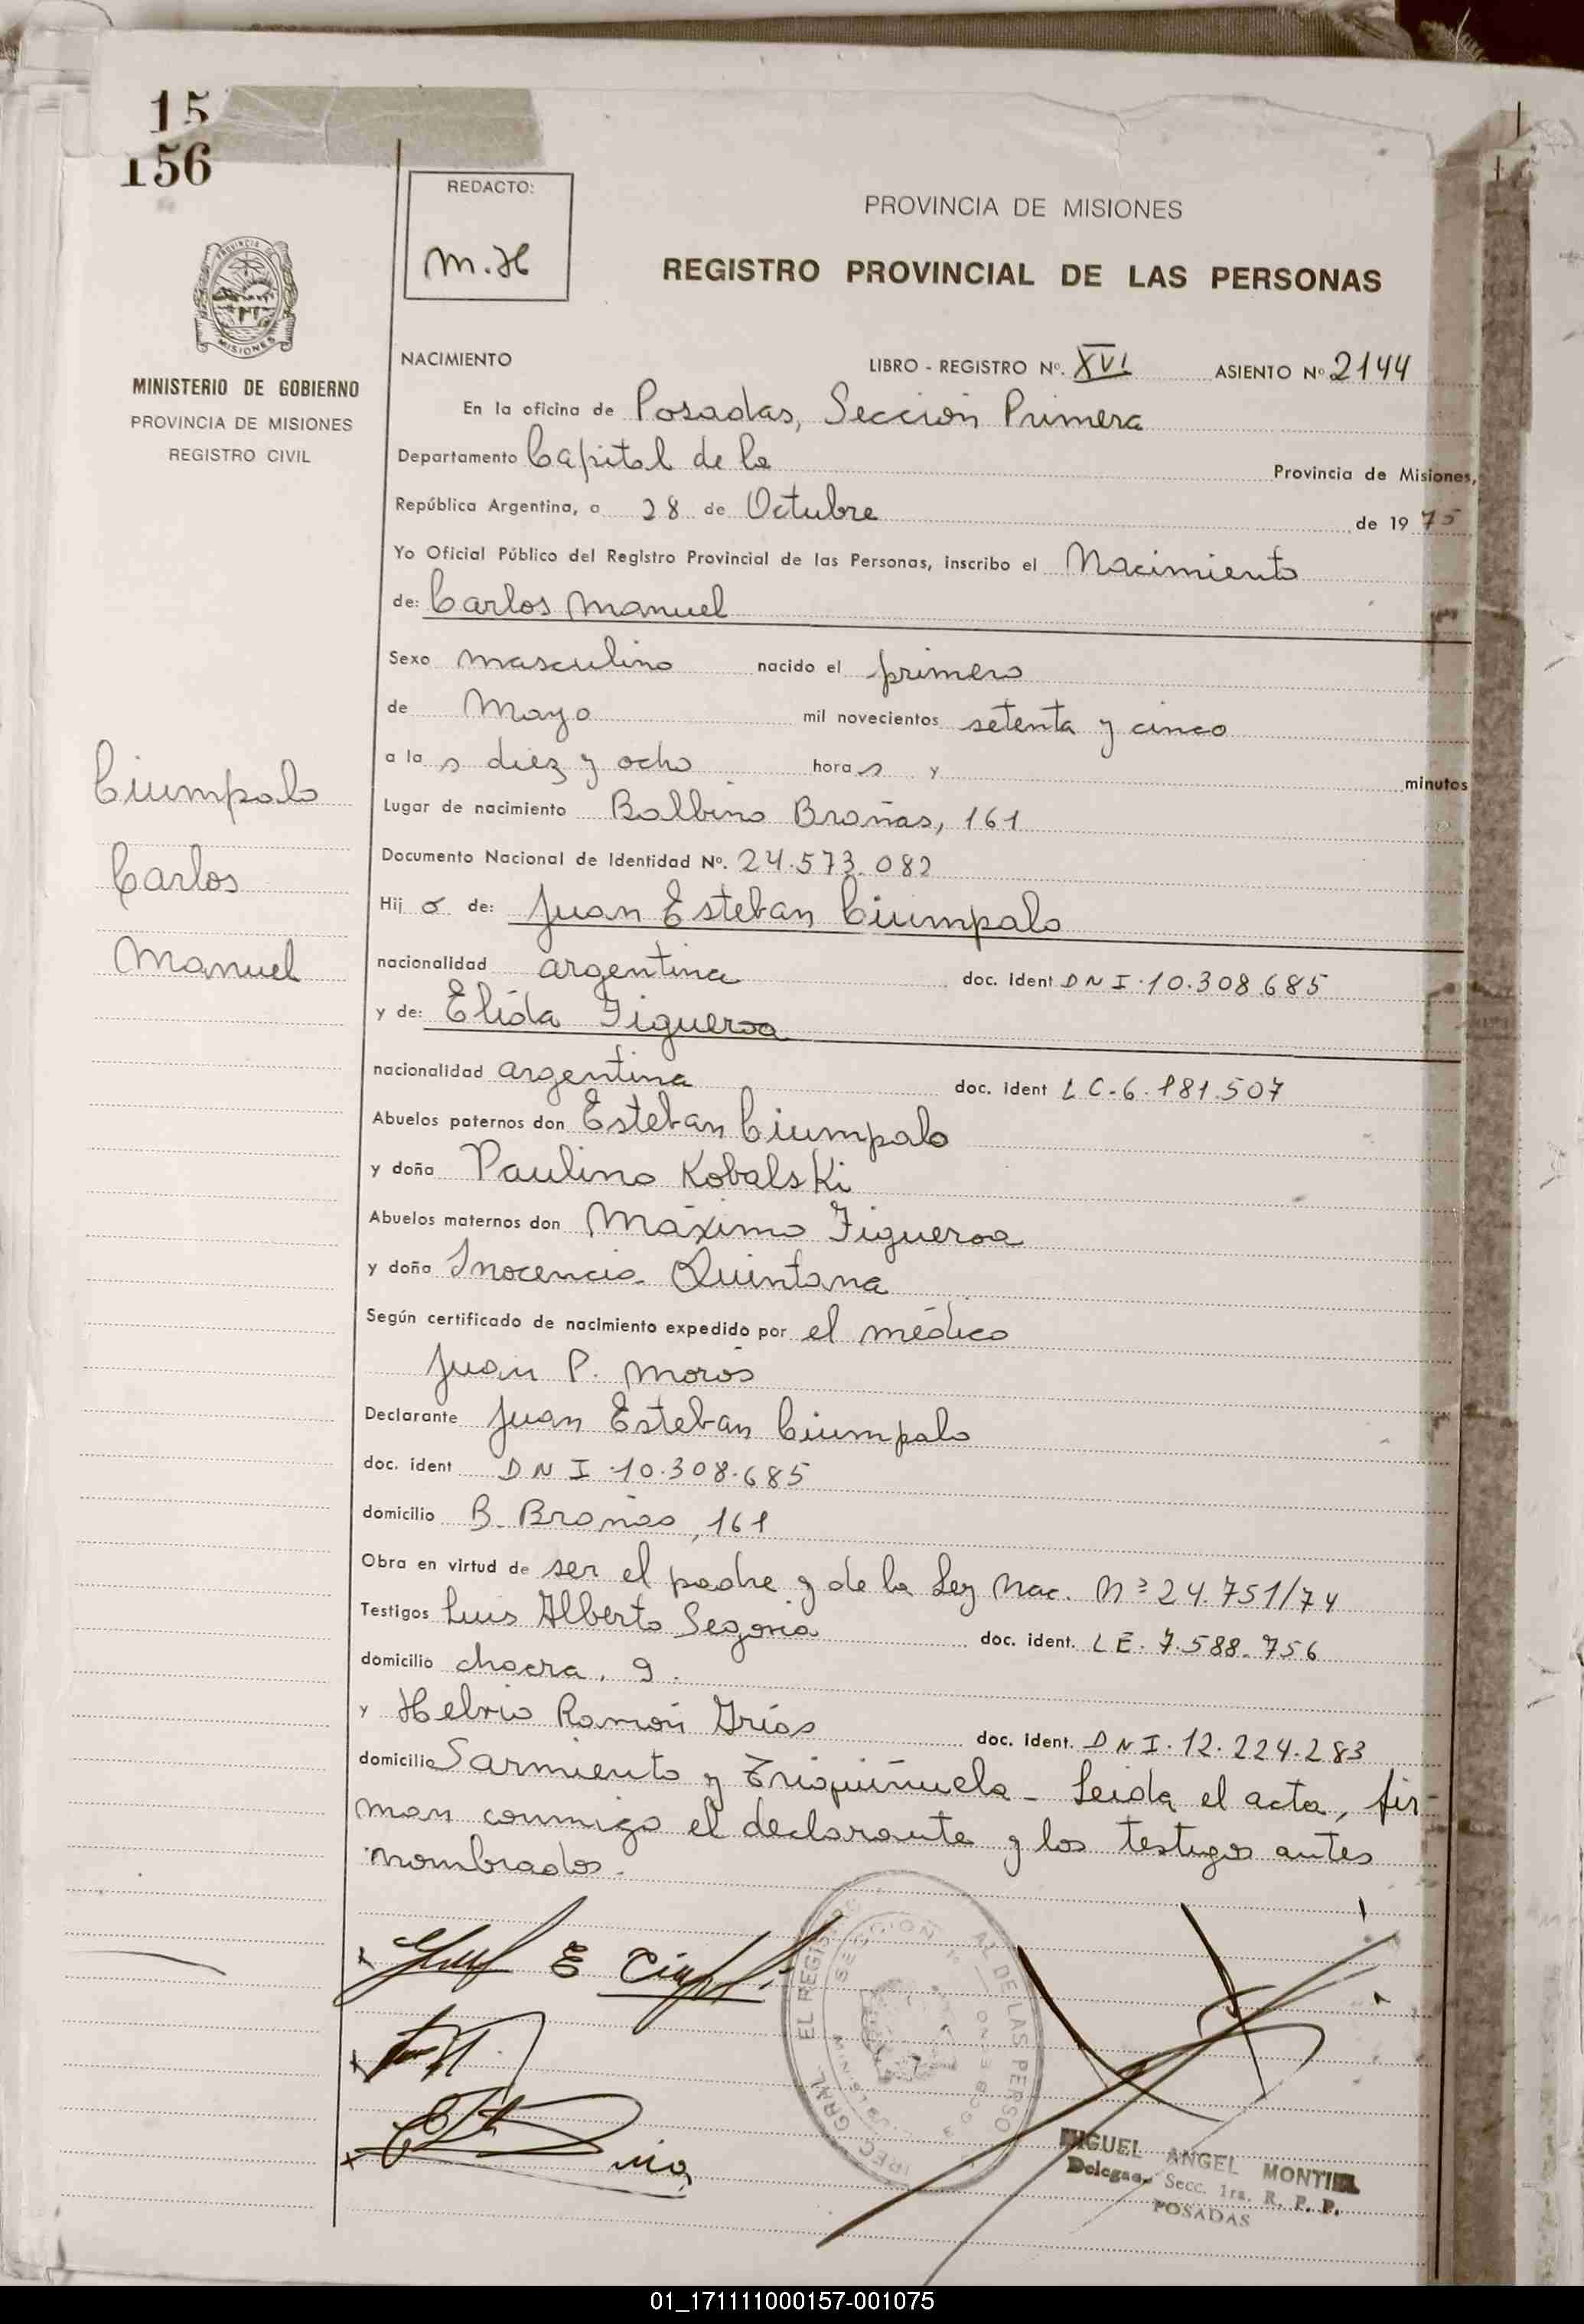 15
156
REDACTO:
M.H
PROVINCIA DE MISIONES
REGISTRO PROVINCIAL DE LAS PERSONAS
MISIONES
MINISTERIO DE GOBIERNO
PROVINCIA DE MISIONES
REGISTRO CIVIL
NACIMIENTO LIBRO - REGISTRO Nº. XVI ASIENTO Nº 2144
En la oficina de Posadas, Sección Primera
Departamento Capital de la Provincia de Misiones,
República Argentina, a 28 de Octubre de 1975
Yo Oficial Público del Registro Provincial de las Personas, inscribo el Nacimiento
de: Carlos Manuel
Sexo masculino nacido el primero
de Mayo mil novecientos setenta y cinco
a las diez y ocho horas y minutos
Ciumpalo
Carlos
Manuel
Lugar de nacimiento Balbino Brañas, 161
Documento Nacional de Identidad Nº. 24.573.082
Hijo de: Juan Esteban Ciumpalo
nacionalidad argentina doc. ident DNI.10.308.685
y de: Elida Figueroa
nacionalidad argentina doc. ident LC-6.181.507
Abuelos paternos don Esteban Ciumpalo
y doña Paulina Kobalski
Abuelos maternos don Máximo Figueroa
y doña Inocencia Quintana
Según certificado de nacimiento expedido por el médico
Juan P. Moros
Declarante Juan Esteban Ciumpalo
doc. ident DNI.10.308.685
domicilio B. Brañas, 161
Obra en virtud de ser el padre y de la Ley Nac. Nº 24.751/74
Testigos Luis Alberto Segovia doc. ident. LE. 7.588.756
domicilio chacra, 9.
y Helvio Ramón doc. ident. DNI.12.224.283
domicilio Sarmiento y - Leída el acta, fir-
man conmigo el declarante y los testigos antes
nombrados.
EL REGISTRO
SECCION 1ª
AL DE LAS PERSO
MIGUEL ANGEL MONTIEL
Delegado Secc. 1ra. R. P. P.
POSADAS
01_171111000157-001075